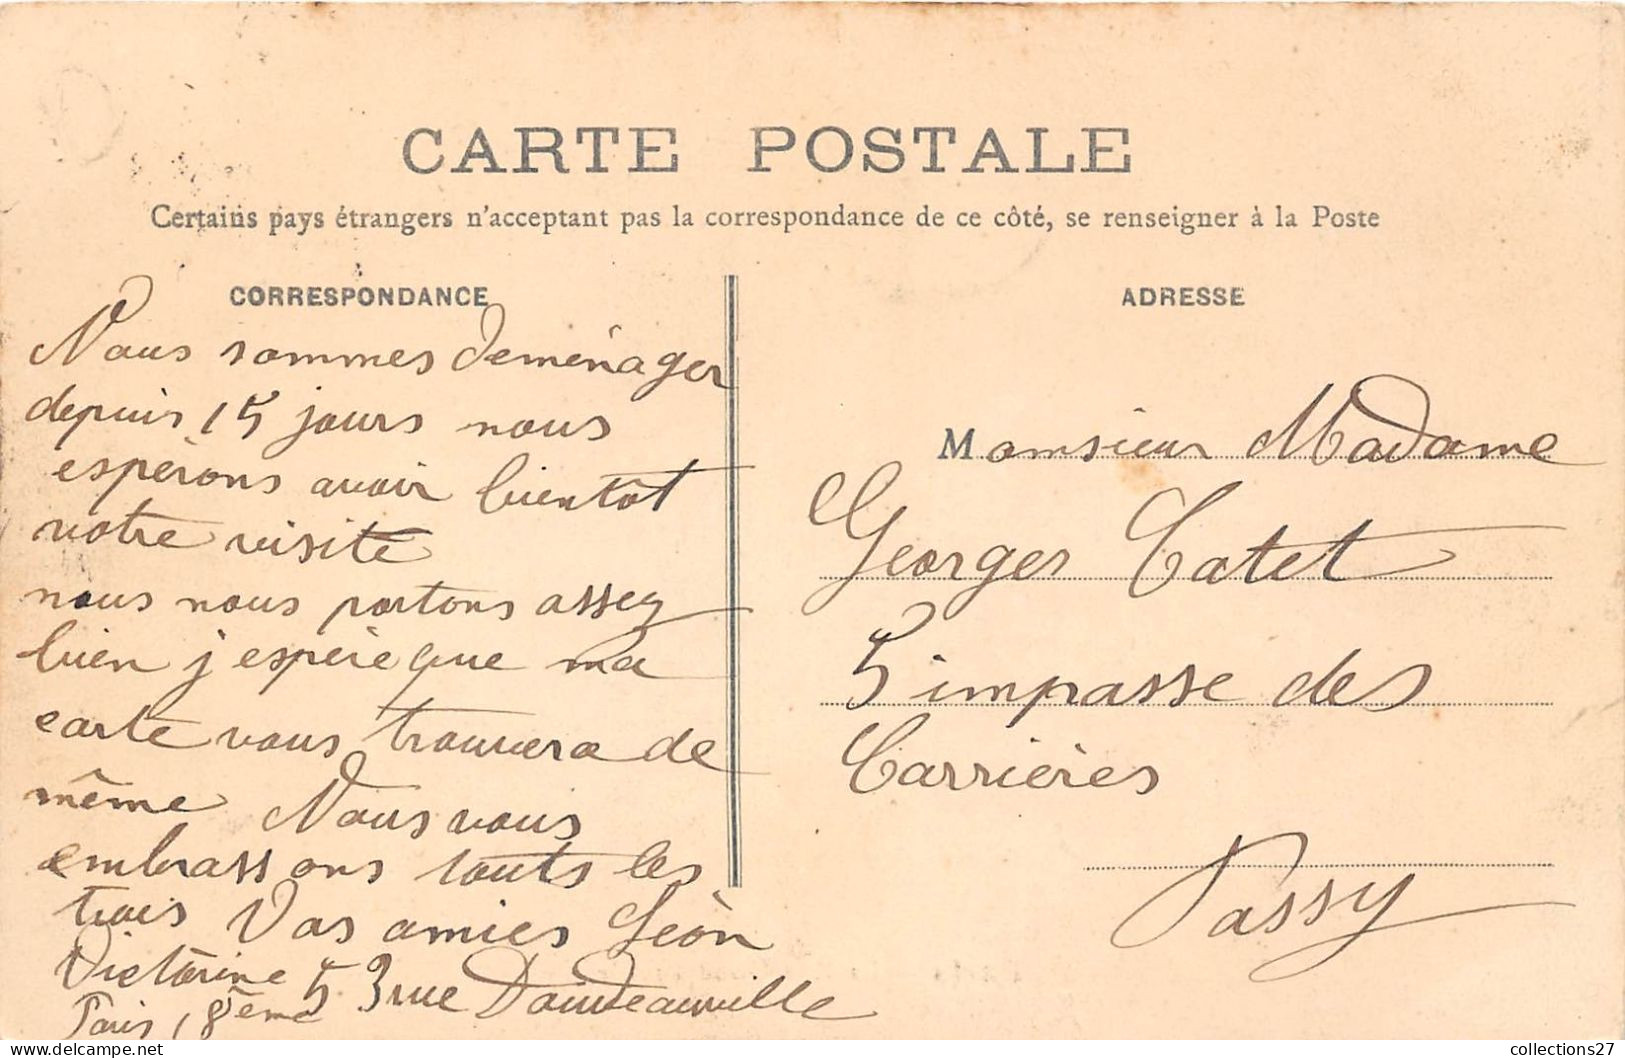 CARTE POSTALE
Certains pays étrangers n'acceptant pas la correspondance de ce côté, se renseigner à la Poste
CORRESPONDANCE
Nous sommes deménager
depuis 15 jours nous
espèrons avoir bientôt
votre visite
nous nous portons assez
bien j espère que ma
carte vous trouvera de
même Nous vous
embrassons touts les
trois Vos amies Léon
Victorine 53 rue Doudeauville
Paris, 18ème
ADRESSE
Monsieur Madame
Georges Catet
5 impasse des
Carrières
Passy
collections27